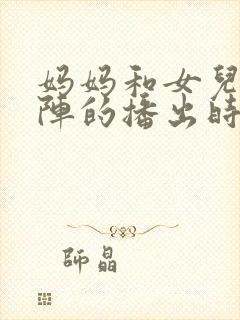 妈妈和女兒
陣的播出時
師晶